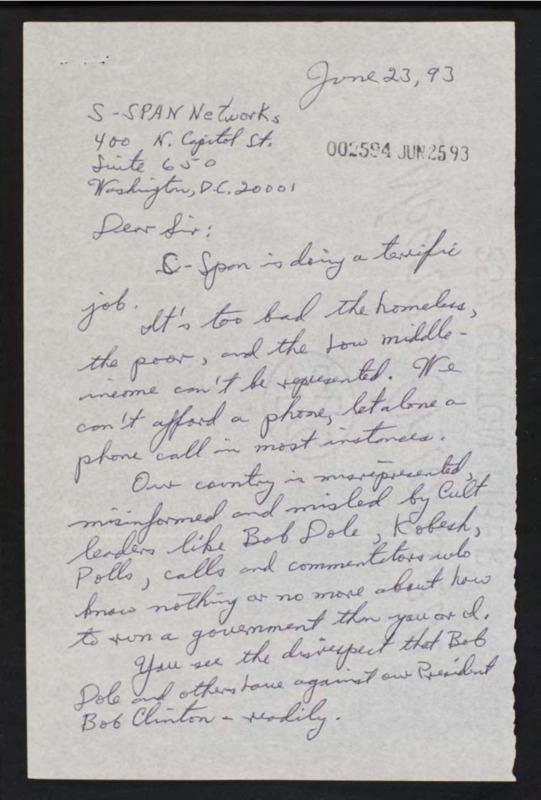 June 23, 93
S-SPAN Networks
400 N. Capitol St.
Suite 650
Washington, D.C. 20001
002594 JUN 25 93
Dear Sir:
S-Span is doing a terrific
job.
It's too bad the homeless,
the poor, and the low middle-
income can't be represented. We
can't afford a phone, let alone a
phone call in most instances.
Our country is misrepresented,
misinformed and misled by Cult
leaders like Bob Dole, Kobesh,
Polls, calls and commentators who
know nothing or no more about how
to run a government than you or I.
You see the disrespect that Bob
Dole and others have against our President
Bob Clinton - readily.